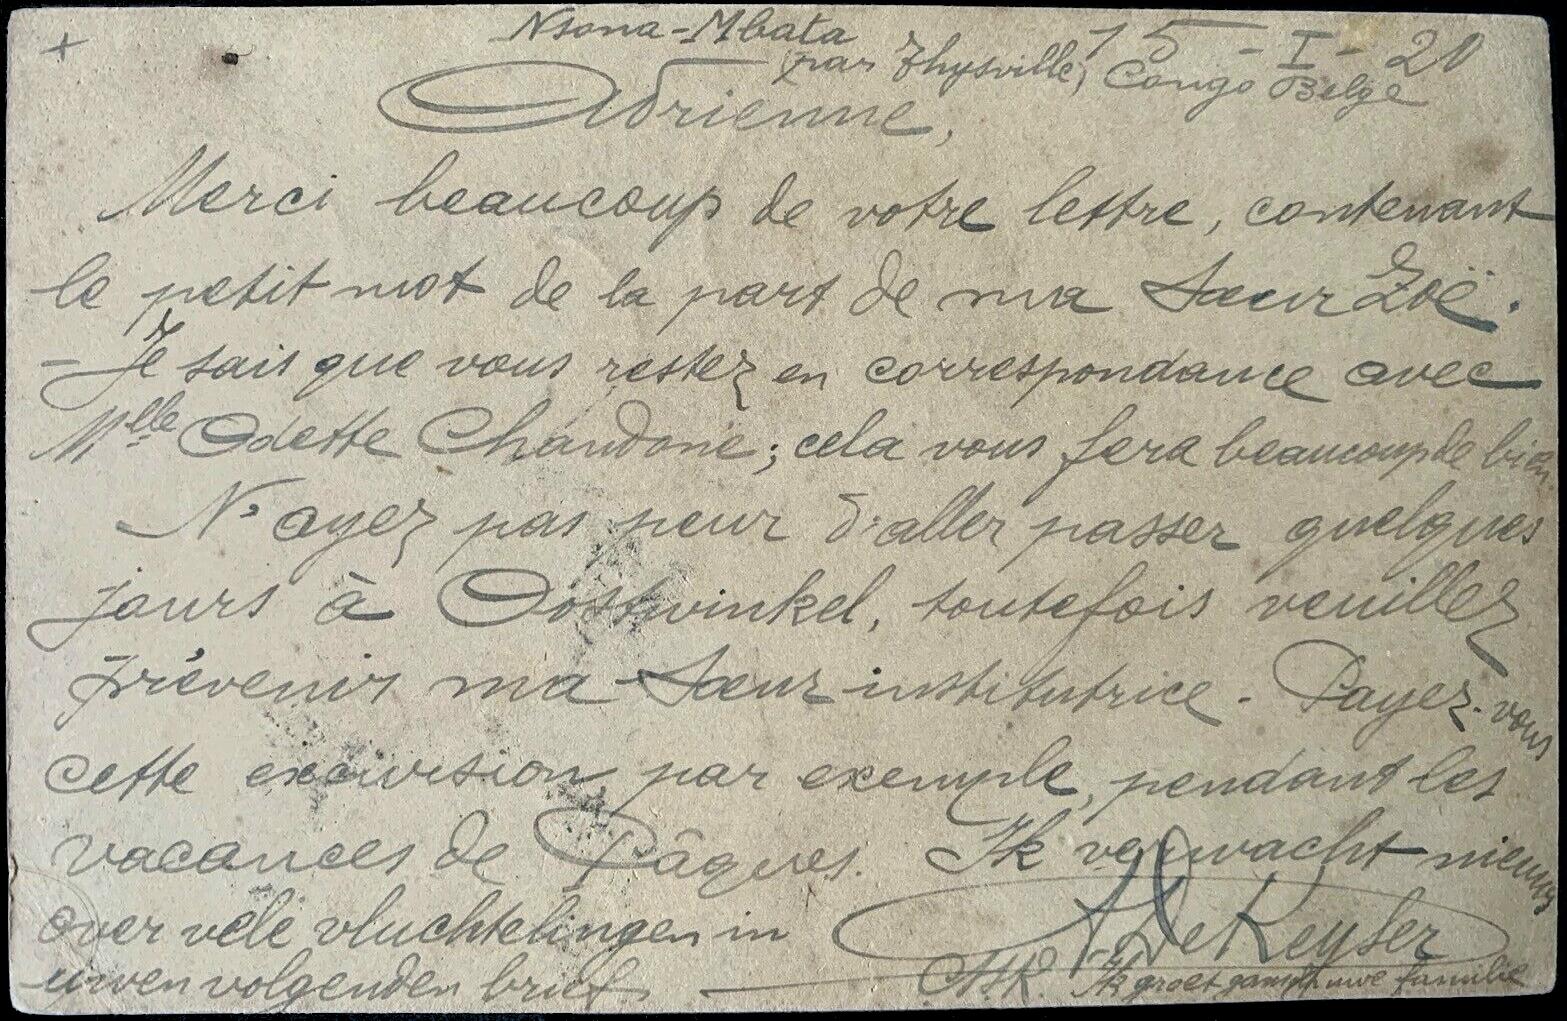 Nsona-Mbata 15-I-20
(par Thysville) Congo Belge
Adrienne,
Merci beaucoup de votre lettre, contenant
le petit mot de la part de ma Sœur Zoë.
- Je sais que vous restez en correspondance avec
Mlle Odette Chaudone; cela vous fera beaucoup de bien.
N'ayez pas peur d'aller passer quelques
jours à Oostwinkel, toutefois veuillez
prévenir ma Sœur institutrice. Payez-vous
cette excursion, par exemple, pendant les
vacances de Pâques. Ik verwacht nieuws
over vele vluchtelingen in
uwen volgenden brief.
De Keyser
Ik groet gansch uwe familie